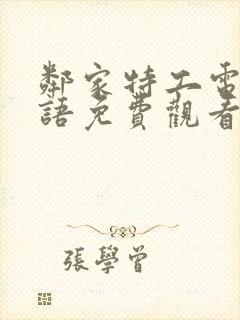 鄰家特工電
語免費觀看
張學曾